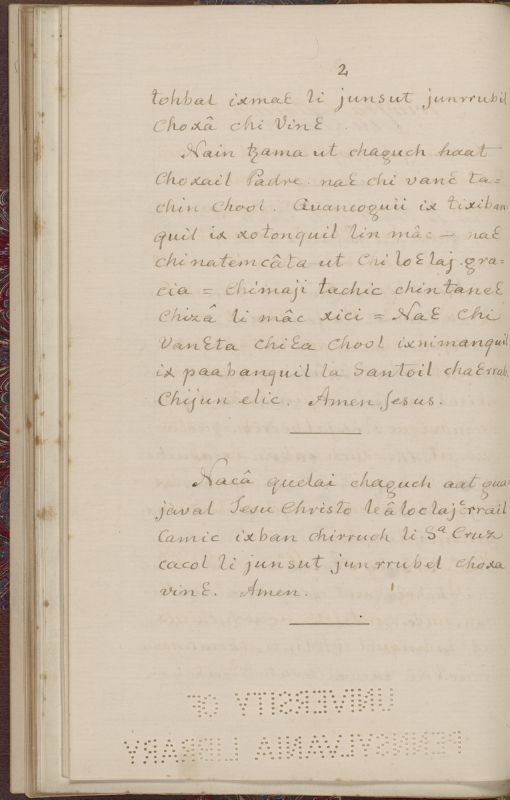 2
tohbal ixmaƐ li junsut junrrubil
choxâ chi VinƐ.
Nain tzama ut chaguch haat
choxail Padre naƐ chi vanƐ ta=
chin chool. Guancoguii ix tixiban
quil ix xotonquil lin mâc — naƐ
chinatemcâta ut chi loƐlaj gra=
cia = chimaji tachic chintaneƐ
Chizâ li mâc xici = NaƐ chi
vanƐta chiƐa chool ixnimanquil
ix paabanquil la Santoil chaƐrrab.
Chijun elic. Amen Jesus.
Nacâ quelai chaguch aat gua=
javal Jesu Christo leâ loclaj crrail
camic ixban chirruch li Sa Cruz
cacol li junsut junrrubel choxa
vinƐ. Amen.
UNIVERSITY OF
PENNSYLVANIA LIBRARY